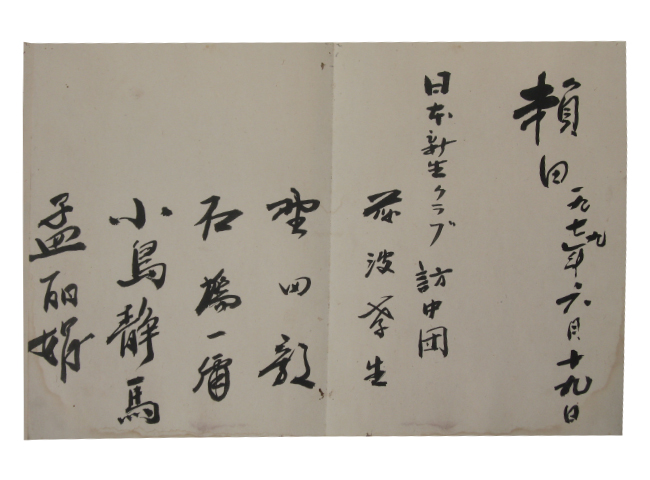 一九七九年六月十九日
日本新生クラブ 訪中団
藤波孝生
四郎
石橋一弥
小島静馬
孟丽娟